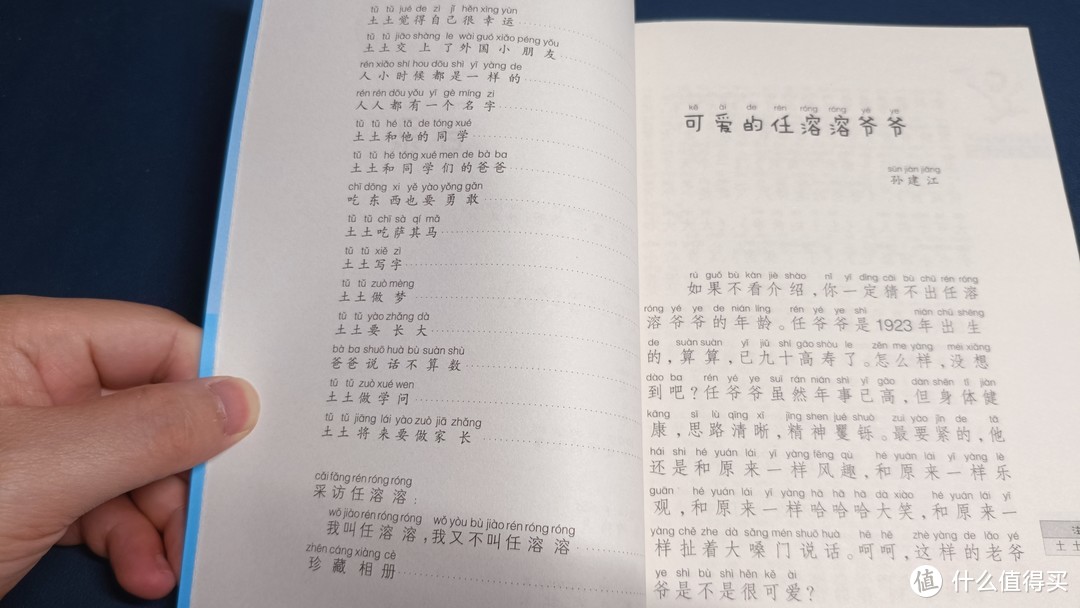 tǔ tǔ jué de zì jǐ hěn xìng yùn
土土觉得自己很幸运
tǔ tǔ jiāo shàng le wài guó xiǎo péng yǒu
土土交上了外国小朋友
rén xiǎo shí hou dōu shì yí yàng de
人小时候都是一样的
rén rén dōu yǒu yí gè míng zi
人人都有一个名字
tǔ tǔ hé tā de tóng xué
土土和他的同学
tǔ tǔ hé tóng xué men de bà ba
土土和同学们的爸爸
chī dōng xi yě yào yǒng gǎn
吃东西也要勇敢
tǔ tǔ chī sà qí mǎ
土土吃萨其马
tǔ tǔ xiě zì
土土写字
tǔ tǔ zuò mèng
土土做梦
tǔ tǔ yào zhǎng dà
土土要长大
bà ba shuō huà bú suàn shù
爸爸说话不算数
tǔ tǔ zuò xué wen
土土做学问
tǔ tǔ jiāng lái yào zuò jiā zhǎng
土土将来要做家长
cǎi fǎng rén róng róng
采访任溶溶：
wǒ jiào rén róng róng wǒ yòu bú jiào rén róng róng
我叫任溶溶，我又不叫任溶溶
zhēn cáng xiàng cè
珍藏相册
kě ài de rén róng róng yé ye
可爱的任溶溶爷爷
sūn jiàn jiāng
孙建江
rú guǒ bú kàn jiè shào nǐ yí dìng cāi bù chū rén róng
如果不看介绍，你一定猜不出任溶
róng yé ye de nián líng rén yé ye shì nián chū shēng
溶爷爷的年龄。任爷爷是1923年出生
de suàn suàn yǐ jiǔ shí gāo shòu le zěn me yàng méi xiǎng
的，算算，已九十高寿了。怎么样，没想
dào ba rén yé ye suī rán nián shì yǐ gāo dàn shēn tǐ jiàn
到吧？任爷爷虽然年事已高，但身体健
kāng sī lù qīng xī jīng shén jué shuò zuì yào jǐn de tā
康，思路清晰，精神矍铄。最要紧的，他
hái shi hé yuán lái yí yàng fēng qù hé yuán lái yí yàng lè
还是和原来一样风趣，和原来一样乐
guān hé yuán lái yí yàng hā hā hā dà xiào hé yuán lái yí
观，和原来一样哈哈哈大笑，和原来一
yàng chě zhe dà sǎng mén shuō huà hē hē zhè yàng de lǎo yé
样扯着大嗓门说话。呵呵，这样的老爷
ye shì bú shì hěn kě ài
爷是不是很可爱？
土土
值 什么值得买